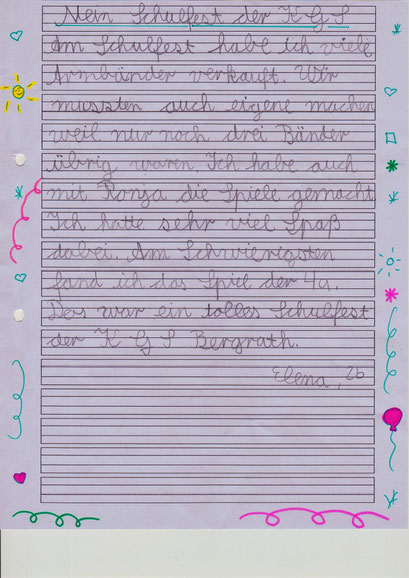 Mein Schulfest der K G S
Am Schulfest habe ich viele
Armbänder verkauft. Wir
mussten auch eigene machen
weil nur noch drei Bänder
übrig waren. Ich habe auch
mit Ronja die Spiele gemacht.
Ich hatte sehr viel Spaß
dabei. Am Schwierigsten
fand ich das Spiel der 4a.
Das war ein tolles Schulfest
der K G S Bergrath.
Elena, 2b